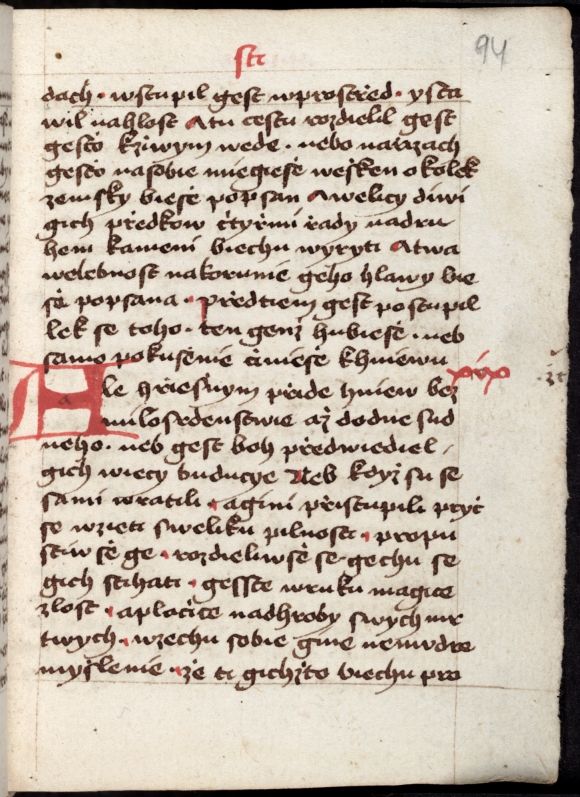 sti
94
dach · wstupil gest wprostřed · ysta
wil nahlost Atu cestu rozdielil gest
gesto křiwym wede · nebo narzach
gesto nasobie miegieše wešken okolek
zemsky bieše popsan Awelicy diwi
gich předkow čtyřmi řady nadru
hem kameni biechu wyryti Atwa
welebnost nakorunie geho hlawy bie
še popsana · předtiem gest postupil
lek se toho · ten genž hubieše · neb
samo pokušenie činieše khniewu
Ale hřiešnym přide hniew bez
xix
milosrdenstwie až dodne sud
neho · neb gest boh předwiediel
gich wiecy buducye Neb když su se
sami wratili · agini přistupili pryč
se wzieti swelikú pilnosti · propu
stiw še ge · rozdieliwše se gechu se
gich stihati · gessče wruku magice
zlost · aplačíce nadhroby swych mr
twych · wzechu sobie gine nemudre
myšlenie · že ti gichžto biechu pro